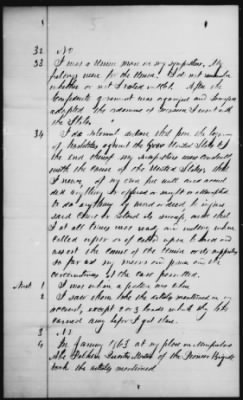 32 No
33 I was a Union man on my sympathies. My
feelings were for the Union. I did not
whether or not I voted in 1861. After the
Confederate government was organized and
adopted the ordinance of secession I went with
the State.
34 I do solemnly declare that from the beginning
of hostilities against the Govt United States to
the end thereof my sympathies were constantly
with the cause of the United States, that
I never, of my own free will and accord
did anything or offered or sought or attempted
to do anything by word or deed to injure
said cause or retard its success, and that
I at all times was ready and willing when
called upon or if called upon to aid and
assist the cause of the Union or its supporters
so far as my means and power and the
circumstances of the case permitted.
1 I was when a
2 I saw them take the articles mentioned in my
account, except 2 or 3 loads which they
carried away before I got there.
3 No
4 In January 1863 at my place on
Quarter Master of the Pioneer Brigade
took the articles mentioned